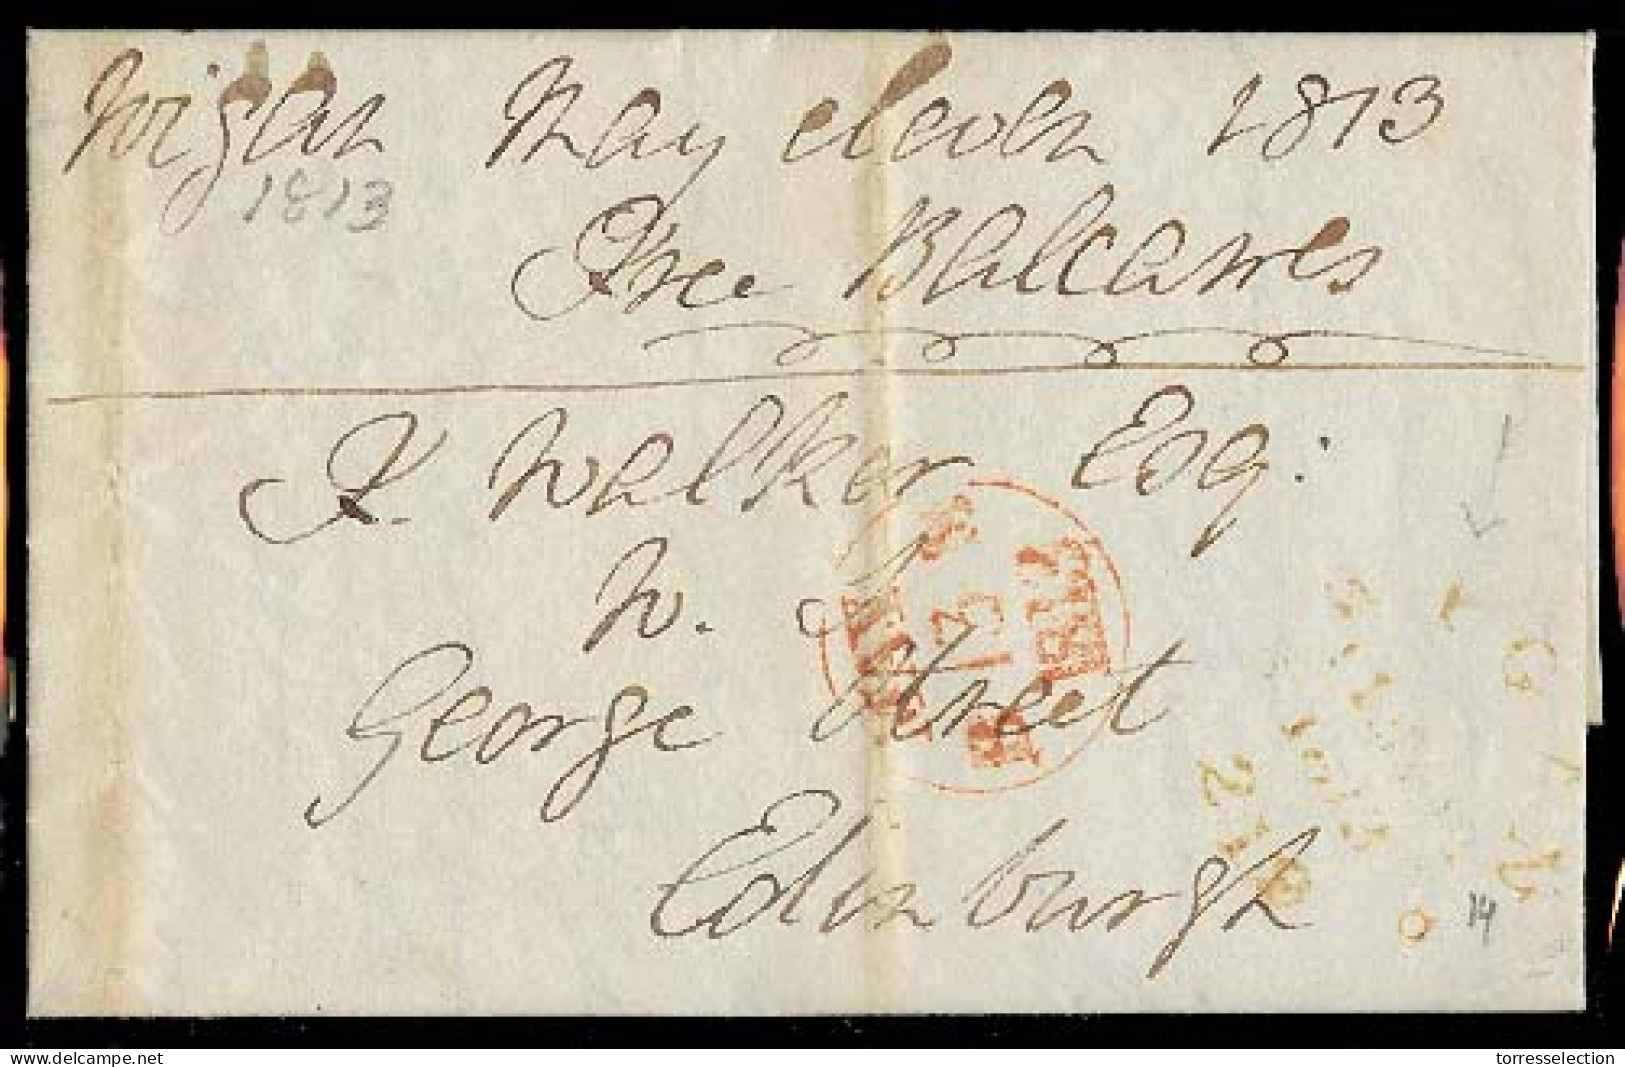 Wigan May eleven 1813
1813
Free Balcarres
J. Walker Esq:
W. S.
George Street
Edinburgh
13
1813
14
www.delcampe.net
torresselection